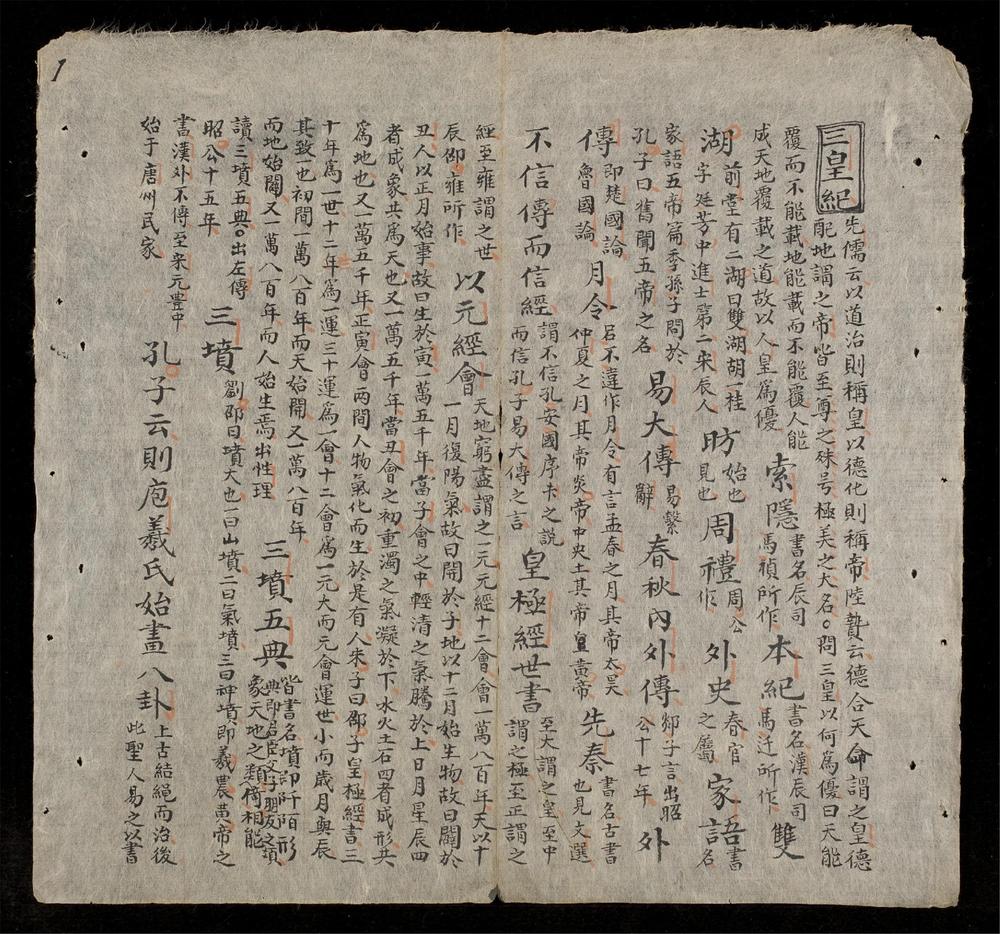 三皇紀先儒云以道治則稱皇以德化則稱帝陸贄云德合天命謂之皇德配地謂之帝皆至尊之殊号極美之大名○問三皇以何為優曰天能
覆而不能載地能載而不能覆人能成天地覆載之道故以人皇為優索隱書名辰司馬禎所作本紀書名漢辰司馬迁所作雙
湖前堂有二湖曰雙湖胡一桂字廷芳中進士第二宋辰人昉始也見也周禮周公作外史春官之属家語書名
家語五帝篇季孫子問於孔子曰舊聞五帝之名易大傳易繫辭春秋內外傳郯子言出昭公十七年外
傳即楚國論魯國論月令呂不違作月令有言孟春之月其帝太昊仲夏之月其帝炎帝中央土其帝黃帝先秦書名古書也見文選
不信傳而信經謂不信孔安國序未之說而信孔子易大傳之言皇極經世書至大謂之皇至中謂之極至正謂之
經至雍謂之世辰邵雍所作以元經會天地窮盡謂之一元元經十二會會一萬八百年天以十一月復陽氣故曰開於子地以十二月始生物故曰闢於
丑人以正月始事故曰生於寅一萬五千年當子會之中輕清之氣騰於上日月星辰四者成象共為天也又一萬五千年當丑會之初重濁之氣凝於下水火土石四者成形共
為地也又一萬五千年正寅會兩間人物氣化而生於是有人朱子曰邵子皇極經書三十年為一世十二年為一運三十運為一會十二會為一元大而元會運世小而歲月與辰
其致一也初間一萬八百年而天始開又一萬八百年而地始闢又一萬八百年而人始生焉出性理三墳五典皆書名墳即阡陌形象天地之類典即君臣父子朋友之類備相能
讀三墳五典○出左傳昭公十五年三墳劉邵曰墳大也一曰山墳二曰氣墳三曰神墳即羲農黃帝之
書漢外不傳至宋元豊中始于唐州民家孔子云則庖羲氏始畫八卦上古結繩而治後此聖人易之以書
1